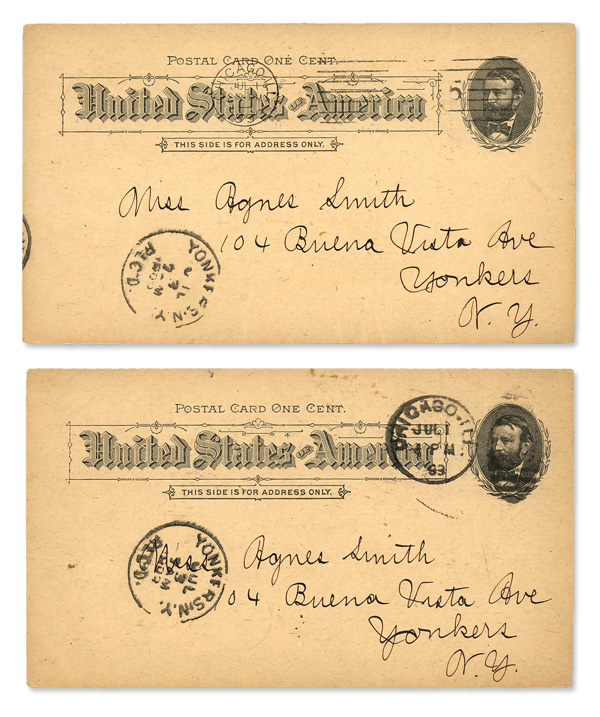 POSTAL CARD ONE CENT.
CHICAGO, ILL.
United States of America
THIS SIDE IS FOR ADDRESS ONLY.
Miss Agnes Smith
104 Buena Vista Ave
Yonkers
N. Y.
YONKERS, N.Y.
REC'D.
POSTAL CARD ONE CENT.
CHICAGO, ILL.
JUL 1
4 PM
93
United States of America
THIS SIDE IS FOR ADDRESS ONLY.
Miss Agnes Smith
04 Buena Vista Ave
Yonkers
N. Y.
YONKERS, N.Y.
REC'D.